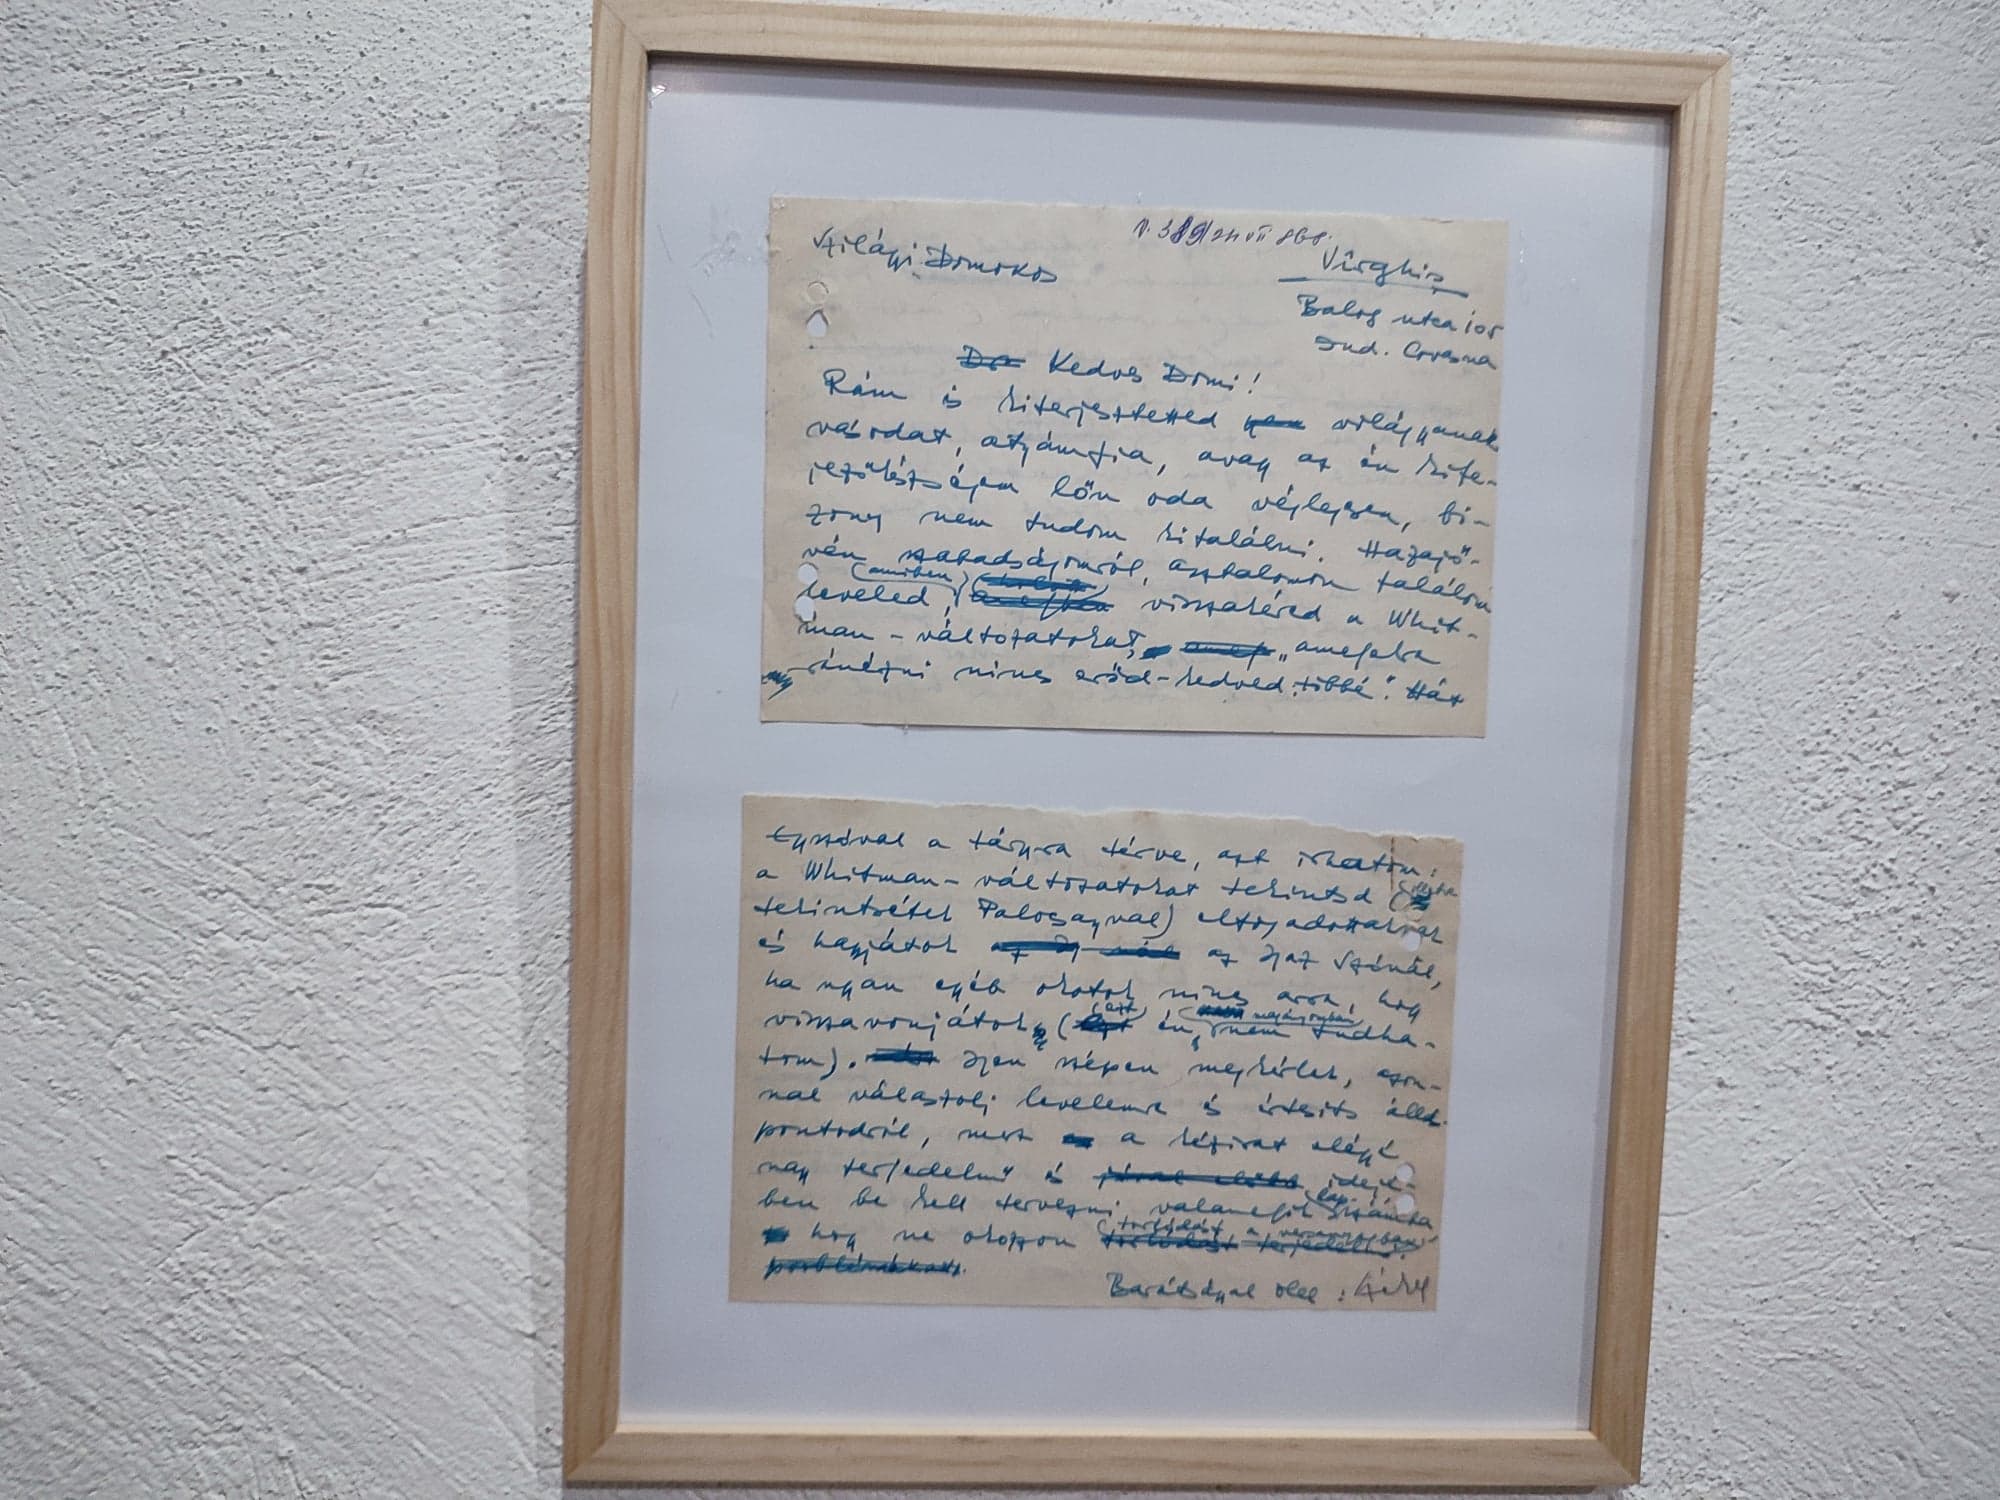 Szilágyi Domokos
Vîrghiş
Balog utca 108
Jud. Covasna
Kedves Domi!
Rám is kiterjesztetted világgyanak
vásodat, atyámfia, avagy az én kife-
jezőkészségem lőn oda véglegesen, bi-
zony nem tudom kitalálni. Hazajö-
vén szabadságomról, asztalomon találom
(amiben)
leveled, visszakéred a Whit-
man-változatokat, „amelyekre
ránézni nincs erőd-kedved többé". Hát
Egyszóval a tárgyra térve, azt írhatom:
a Whitman-változatokat tekintsd (
tekintsétek Palocsayval) elfogadottaknak
és hagyjátok az Igaz Szónál,
ha ugyan egyéb okotok nincs arra, hogy
(ezt
visszavonjátok (én, nem tudha-
tom). Igen szépen megkérlek, azon-
nal válaszolj levelemre és értesíts állás-
pontodról, mert a kézirat eléggé
nagy terjedelmű és idejé-
ben be kell tervezni valamelyik lap-
számba
hogy ne okozzon torlódást a versanyagban.
Barátsággal ölel: